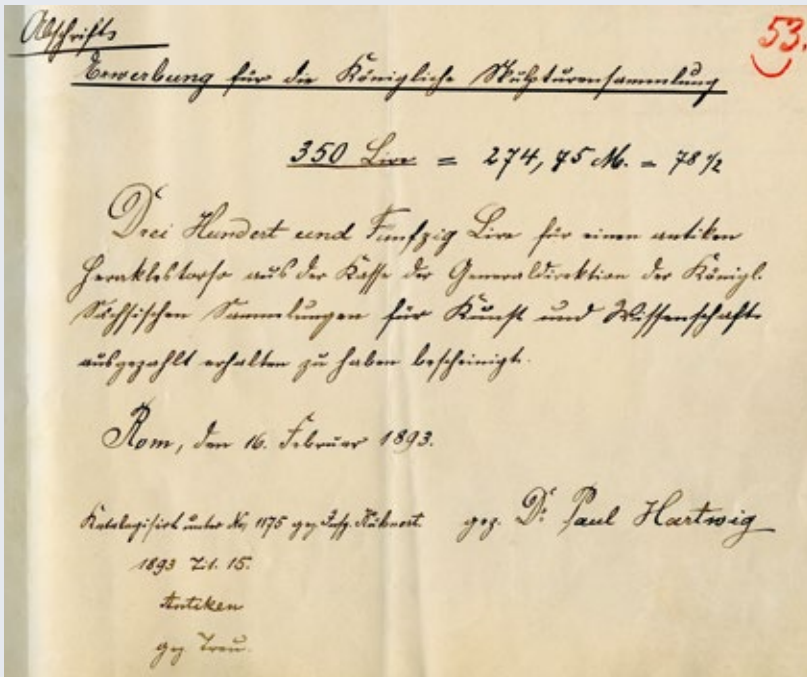 Abschrift.
53.
Erwerbung für die Königliche Skulpturensammlung
350 Lire = 274,75 M. = 78 1/2
Drei Hundert und Fünfzig Lire für einen antiken
Heraklestorso aus der Kasse der Generaldirektion der Königl.
Sächsischen Sammlungen für Kunst und Wissenschaft
ausgezahlt erhalten zu haben bescheinigt.
Rom, den 16. Februar 1893.
gez. Dr. Paul Hartwig
Katalogisirt unter No, 1175 gez. Insp. Kühnert.
1893 Tit. 15.
Antiken
gez. Treu.